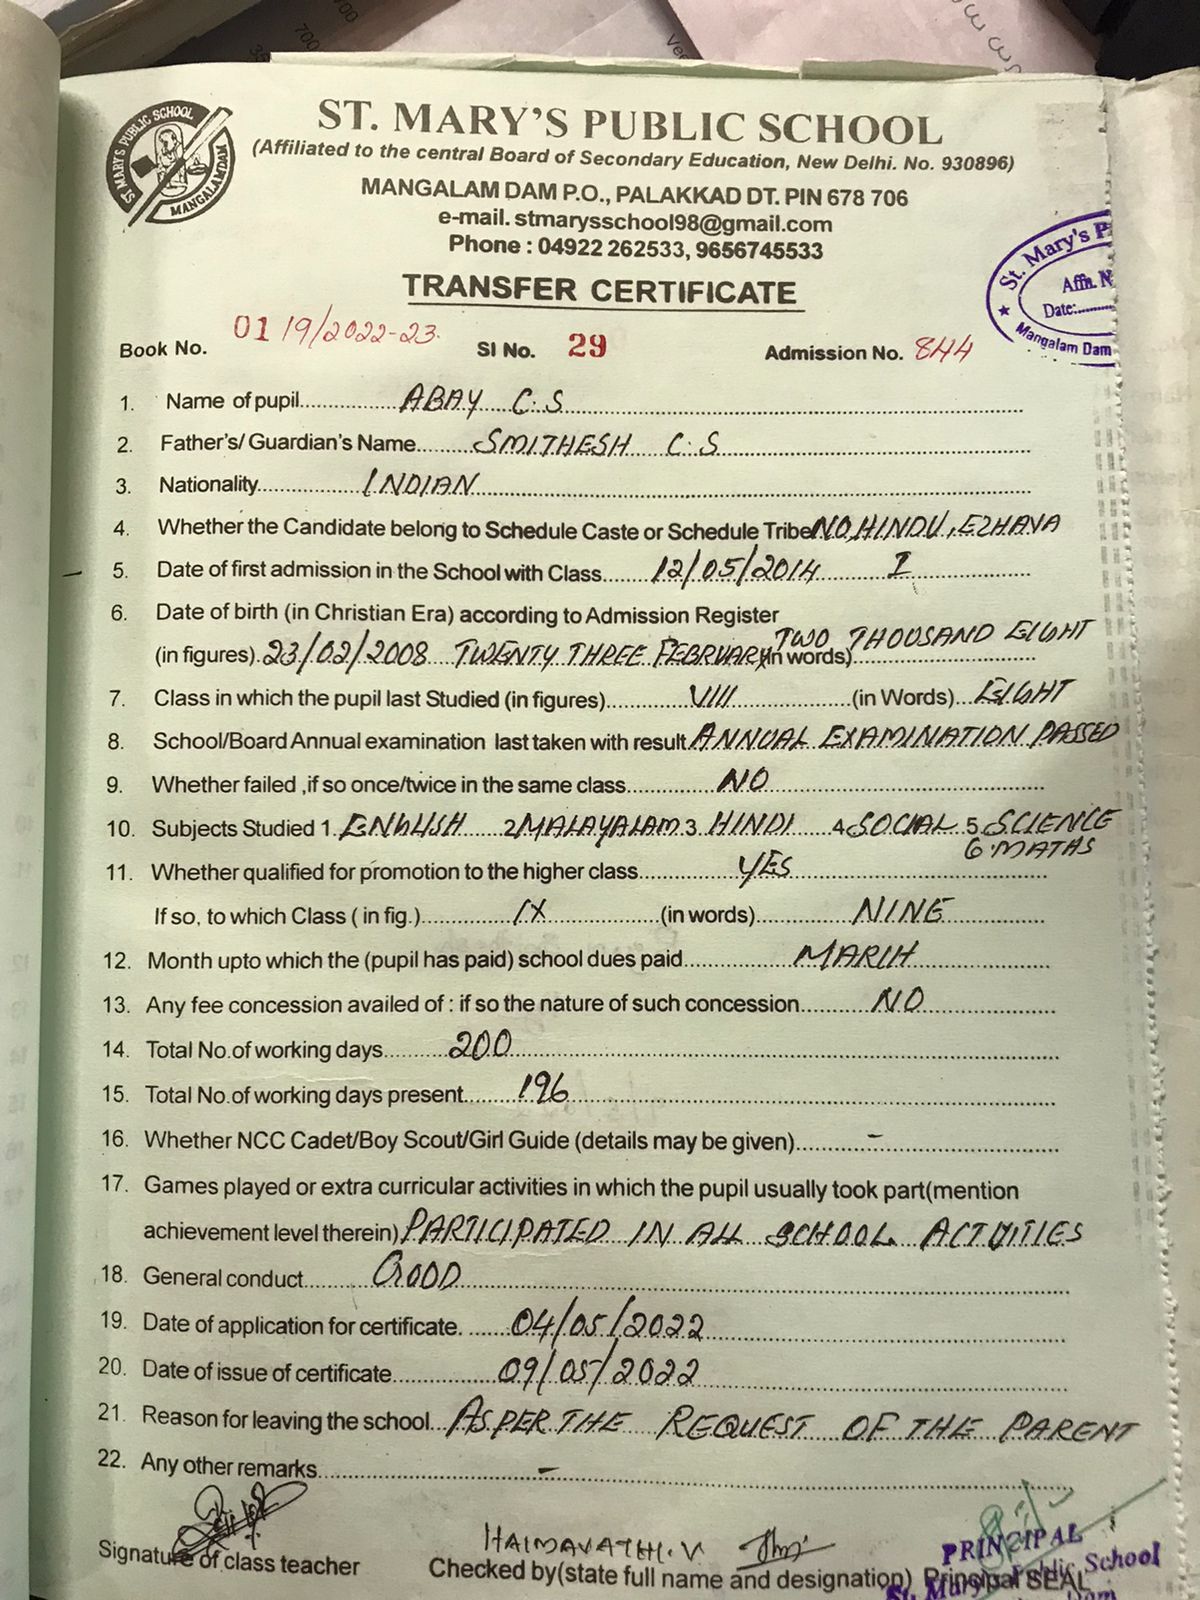 ST. MARY'S PUBLIC SCHOOL
MANGALAMDAM
ST. MARY'S PUBLIC SCHOOL
(Affiliated to the central Board of Secondary Education, New Delhi. No. 930896)
MANGALAM DAM P.O., PALAKKAD DT. PIN 678 706
e-mail. stmarysschool98@gmail.com
Phone : 04922 262533, 9656745533
St. Mary's P
Affn. N
Date:.........
Mangalam Dam
TRANSFER CERTIFICATE
Book No. 01 19/2022-23. Sl No. 29 Admission No. 844
1. Name of pupil.....ABAY C.S
2. Father's/ Guardian's Name.....SMITHESH C.S
3. Nationality.....INDIAN
4. Whether the Candidate belong to Schedule Caste or Schedule Tribe NO, HINDU, EZHAVA
5. Date of first admission in the School with Class.....12/05/2014 I
6. Date of birth (in Christian Era) according to Admission Register
(in figures).23/02/2008 TWENTY THREE FEBRUARY (in words) TWO THOUSAND EIGHT
7. Class in which the pupil last Studied (in figures).....VIII.....(in Words)...EIGHT
8. School/Board Annual examination last taken with result ANNUAL EXAMINATION PASSED
9. Whether failed ,if so once/twice in the same class.....NO
10. Subjects Studied 1.ENGLISH 2 MALAYALAM 3 HINDI 4 SOCIAL 5 SCIENCE
6 MATHS
11. Whether qualified for promotion to the higher class.....YES
If so, to which Class ( in fig.).....IX.....(in words).....NINE
12. Month upto which the (pupil has paid) school dues paid.....MARCH
13. Any fee concession availed of : if so the nature of such concession.....NO
14. Total No.of working days.....200
15. Total No.of working days present.....196
16. Whether NCC Cadet/Boy Scout/Girl Guide (details may be given).....-
17. Games played or extra curricular activities in which the pupil usually took part(mention
achievement level therein) PARTICIPATED IN ALL SCHOOL ACTIVITIES
18. General conduct.....GOOD
19. Date of application for certificate. .....04/05/2022
20. Date of issue of certificate.....09/05/2022
21. Reason for leaving the school...AS PER THE REQUEST OF THE PARENT
22. Any other remarks.....-
HAIMAVATHI.V
Signature of class teacher Checked by(state full name and designation) Principal SEAL
PRINCIPAL
St. Mary's Public School